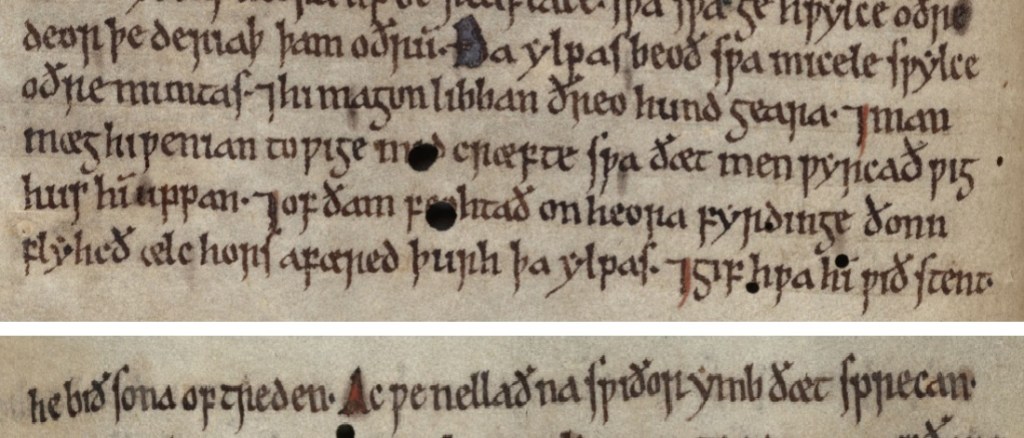 ƿa ƿæ ge hƿylce oðre
deor þe deriaþ þam oðrū. Ða ylpas beoð sƿa micele sƿylce
oðre muntas. ⁊ hi magon libban ðreo hund geara. ⁊ man
mæg hi ƿenian to ƿige mid cræfte sƿa ðæt men ƿyrcað ƿig
hus hī uppan. ⁊ of ðam feohtað on heora fyrdinge ðonn
flyhð ælc hors afæred þurh þa ylpas. ⁊ gif hƿa hī ƿið stent.
he bið sona of treden. Ac ƿe nellað na sƿiðor ymb ðæt sprecan.